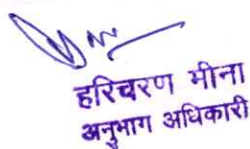 हरिचरण मीना
अनुभाग अधिकारी